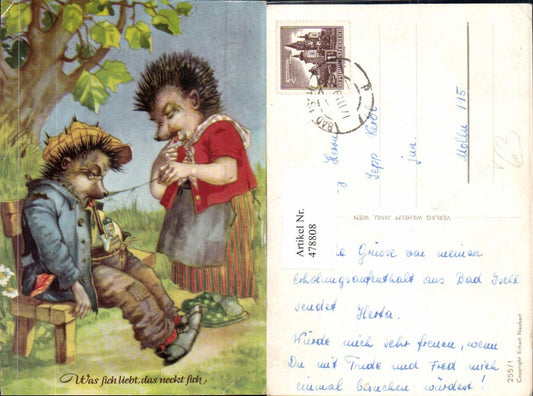 Was sich liebt, das neckt sich
Herrn
Sepp
jun.
Molln 115
V63
VERLAG WILHELM JANU, WIEN
Artikel Nr.
478808
Grüsse von meinem
Erholungsaufenthalt aus Bad Ischl
sendet Herta.
Würde mich sehr freuen, wenn
Du mit Trude und Fred mich
einmal besuchen würdest!
255/1
Copyright Erhart Neubert